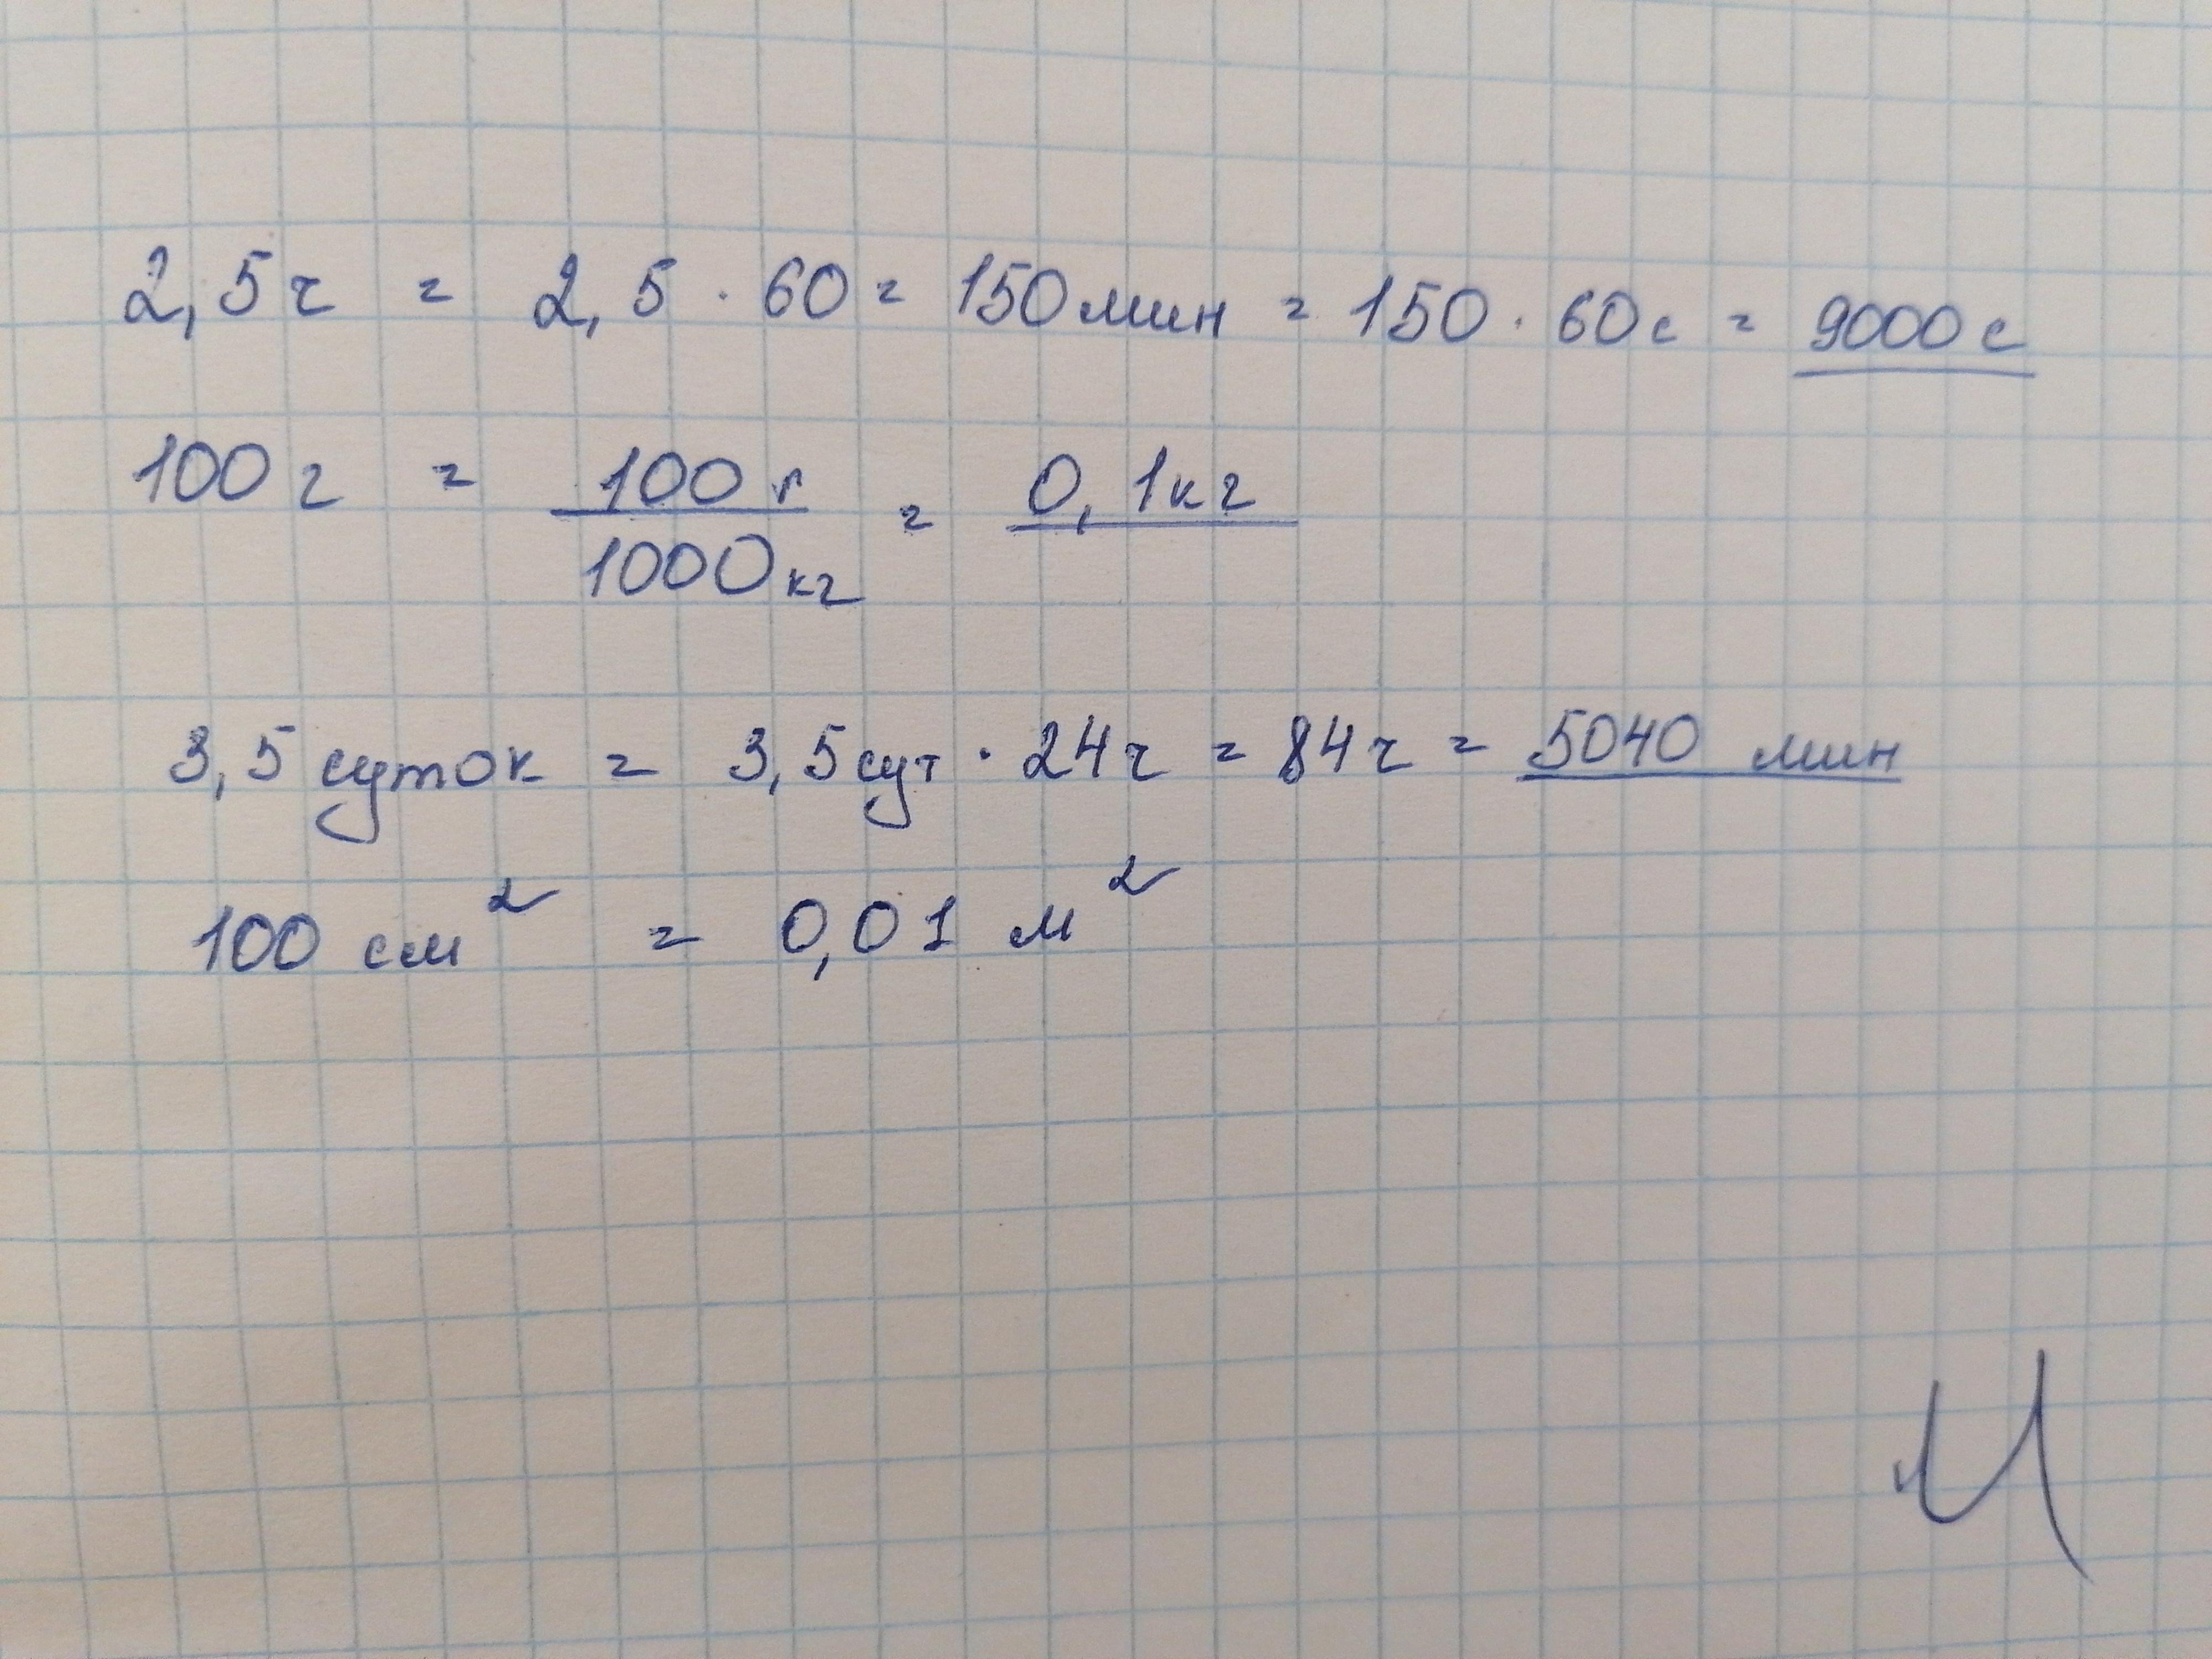 2,5ч = 2,5 · 60 = 150 мин = 150 · 60с = 9000 с
100 г = 100 г / 1000 кг = 0,1 кг
3,5 суток = 3,5 сут · 24ч = 84ч = 5040 мин
100 см² = 0,01 м²